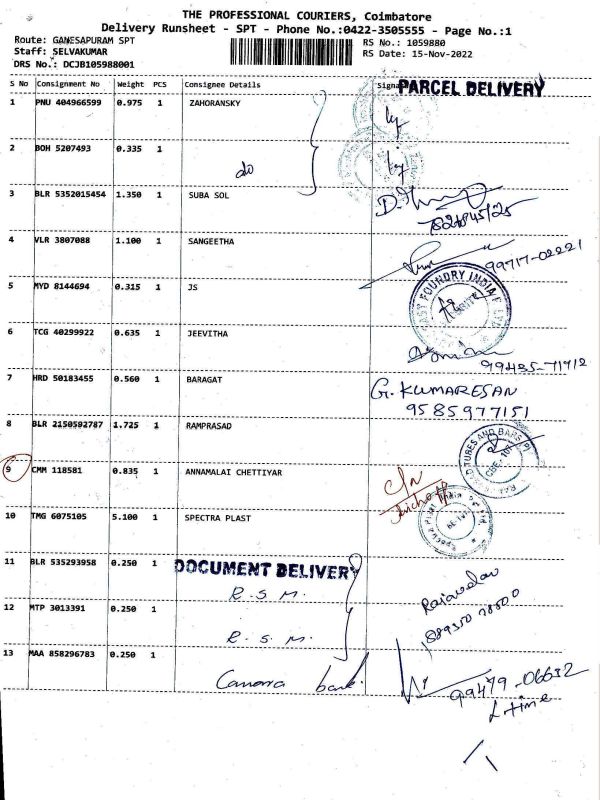 THE PROFESSIONAL COURIERS, Coimbatore
Delivery Runsheet - SPT - Phone No.:0422-3505555 - Page No.:1
Route: GANESAPURAM SPT
RS No.: 1059880
Staff: SELVAKUMAR
RS Date: 15-Nov-2022
DRS No.: DCJB105988001
S No Consignment No Weight PCS Consignee Details
PARCEL DELIVERY
1 PNU 404966599 0.975 1 ZAHORANSKY
2 BOH 5207493 0.335 1 do
3 BLR 5352015454 1.350 1 SUBA SOL
4 VLR 3807088 1.100 1 SANGEETHA
99717-02221
5 MYD 8144694 0.315 1 JS
FOUNDRY INDIA
6 TCG 40299922 0.635 1 JEEVITHA
99435-71712
7 HRD 50183455 0.560 1 BARAGAT
G. KUMARESAN
9585977151
8 BLR 2150592787 1.725 1 RAMPRASAD
TUBES AND BARS
9 CMM 118581 0.835 1 ANNAMALAI CHETTIYAR
10 TMG 6075105 5.100 1 SPECTRA PLAST
11 BLR 535293958 0.250 1
DOCUMENT DELIVERY
R. S. M.
12 MTP 3013391 0.250 1
R. S. M.
13 MAA 858296783 0.250 1
Canara bank
99479-06632